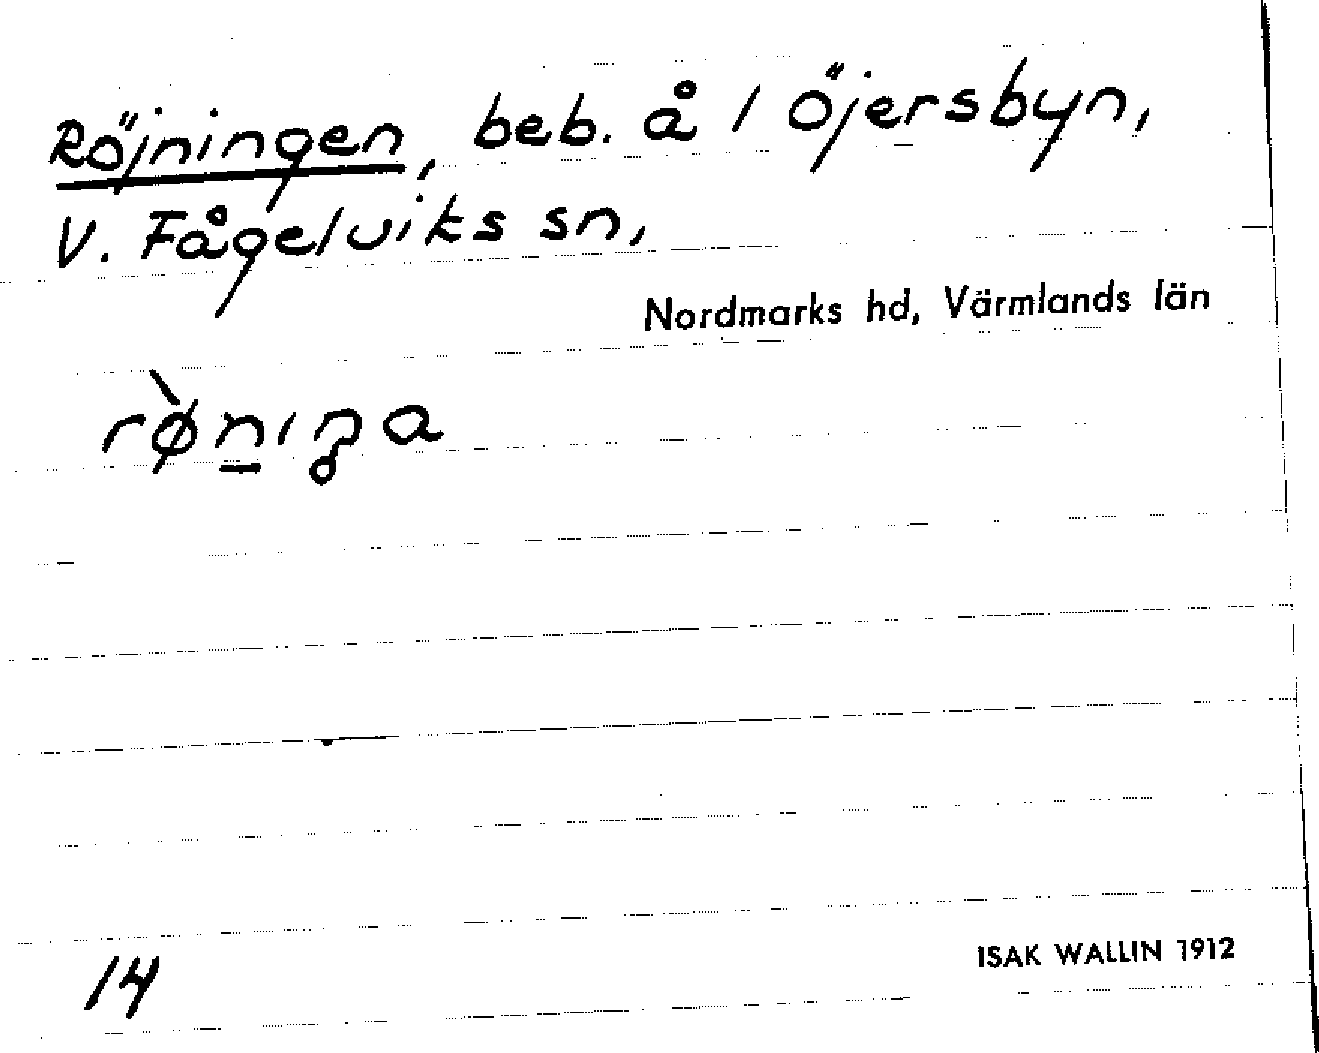 Röjningen, beb. å 1 Öjersbyn,
V. Fågelviks sn,
Nordmarks hd, Värmlands län
rø̀n̲ıŋa
14
ISAK WALLIN 1912